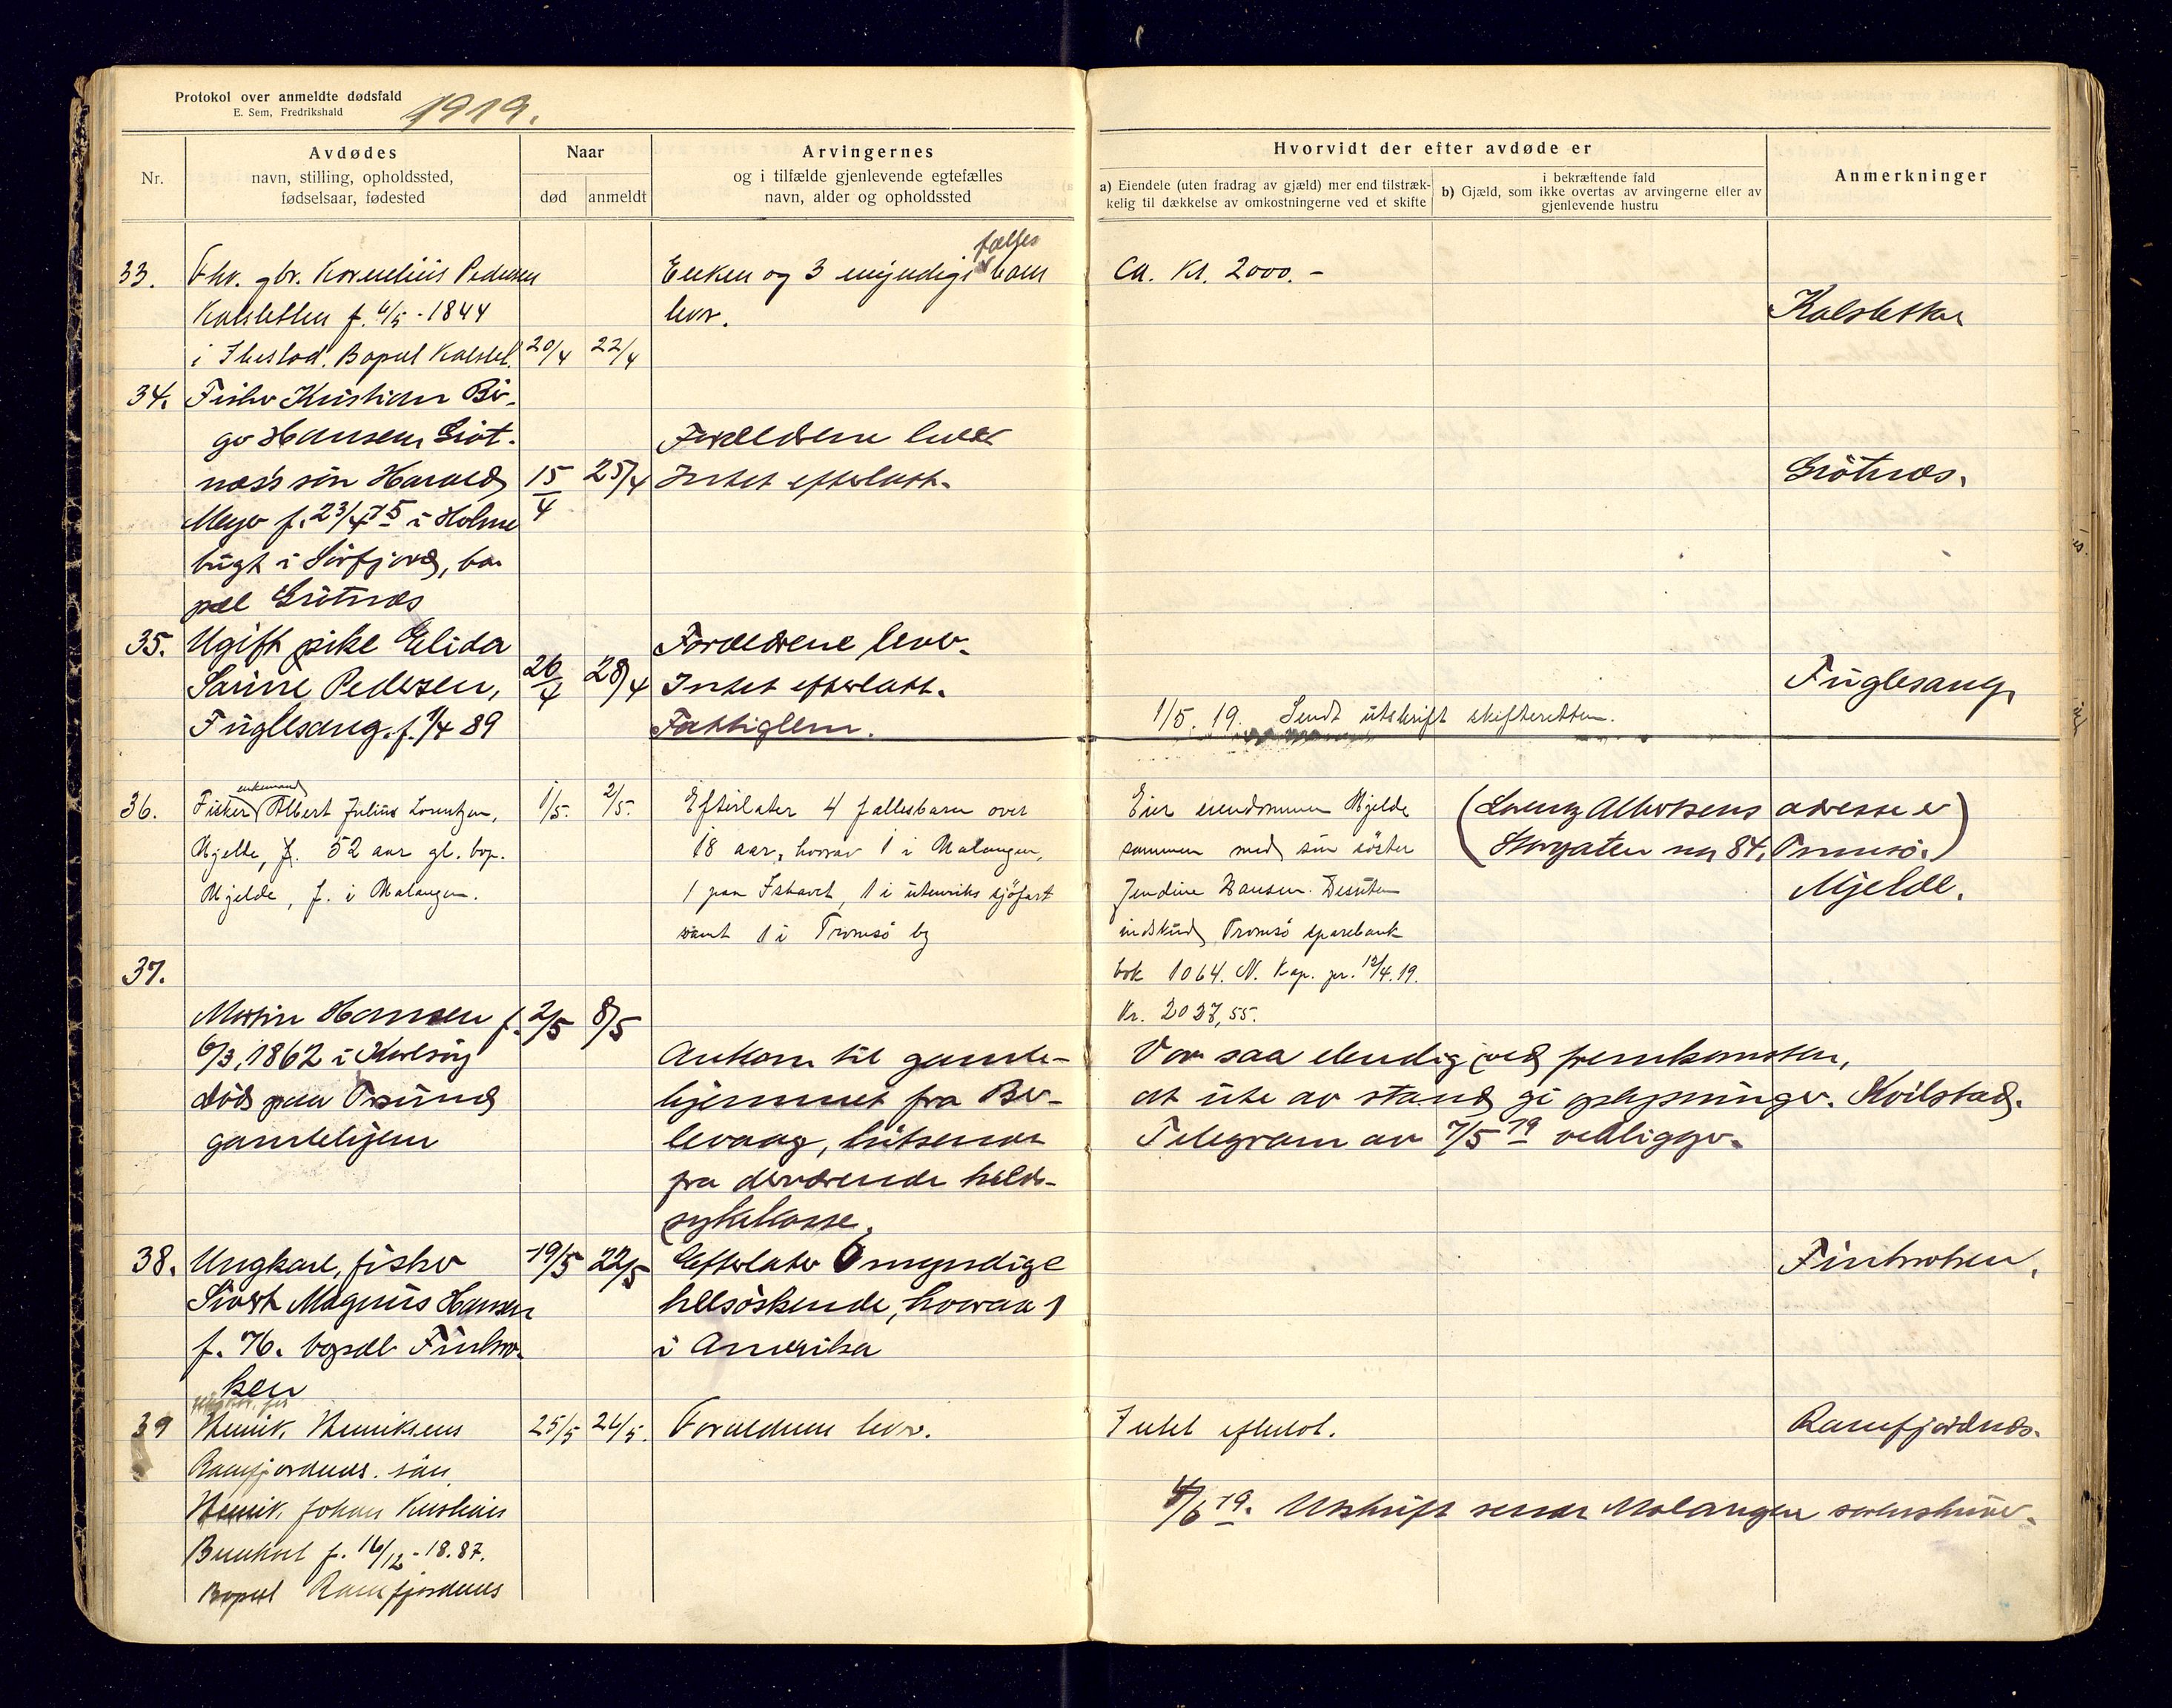 Protokol over anmeldte dødsfald
E. Sem, Fredrikshald
1919.
Nr.
Avdødes
navn, stilling, opholdssted,
fødselsaar, fødested
Naar
død
anmeldt
Arvingernes
og i tilfælde gjenlevende egtefælles
navn, alder og opholdssted
Hvorvidt der efter avdøde er
a) Eiendele (uten fradrag av gjæld) mer end tilstræk-
kelig til dækkelse av omkostningerne ved et skifte
i bekræftende fald
b) Gjæld, som ikke overtas av arvingerne eller av
gjenlevende hustru
Anmerkninger
33.
Fhv. gbr. Kornelius Pedersen
Kalsletten f. 6/5 - 1844
i Ibestad. Bopæl Kalslet.
20/4
22/4
Enken og 3 myndige fælles barn
lever.
Ca. Kr. 2000.-
Kalsletten
34.
Fisker Kristian Bir-
ger Hansen Grøt-
næs's søn Harald
Meyer f. 23/4 75 i Holme
bugt i Sørfjord, bo-
pæl Grøtnæs
15/4
25/4
Forældrene lever
Intet efterlatt.
Grøtnæs.
35.
Ugift pike Elida
Sarine Pedersen,
Fuglesang. f. 1/4 89
26/4
28/4
Forældrene lever.
Intet efterlatt.
Fattiglem.
Fuglesang
1/5. 19. Sendt utskrift skifteretten.
36.
Fisker enkemand Albert Julius Lorentzen,
Mjelde, f. 52 aar gl. bop.
Mjelde, f. i Malangen.
1/5.
2/5.
Efterlater 4 fællesbarn over
18 aar, hvorav 1 i Malangen,
1 paa Ishavet, 1 i utenriks sjøfart
samt 1 i Tromsø by
Eier eiendommen Mjelde
sammen med sin søster
Jendine Hansen. Desuten
indskud Tromsø sparebank
bok 1064. N. Kap. pr. 12/4.19.
Kr. 2037,55.
(Lorentz Albertsens adresse er
Storgaten no 84, Tromsø.)
Mjelde.
37.
Martin Hansen f.
6/3, 1862 i Karlsøy
død paa Trsund
gamlehjem
2/5
8/5
Ankom til gamle-
hjemmet fra Ber-
levaag, hitsendt
fra derværende helds-
sykekasse.
Var saa elendig ved fremkomsten,
at ute av stand gi oplysninger. Kvilstad.
Telegram av 7/5 19 vedligger.
38.
Ungkarl, fisker
Sivert Magnus Hansen
f. 76. bopæl Finkro-
ken
19/5
22/5
Efterlater 6 myndige
helsøskende, hvorav 1
i Amerika
Finkroken.
39
Henrik Henriksens
Ramfjordnes. søn
Henrik Johan Kristian
f. 16/12 - 18.87.
Bopæl Ramfjordnes
25/5
26/5.
Forældrene lever.
Intet efterlat.
Ramfjordnes.
4/6 19. Utskrift sendt Malangen sorenskriver.